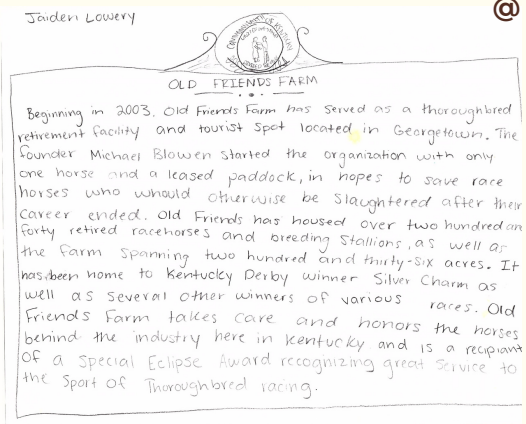 Jaiden Lowery
@
COMMONWEALTH OF KENTUCKY
OLD FRIENDS FARM
Beginning in 2003, Old Friends Farm has served as a thoroughbred
retirement facility and tourist spot located in Georgetown. The
founder Michael Blowen started the organization with only
one horse and a leased paddock, in hopes to save race
horses who whould otherwise be slaughtered after their
career ended. Old Friends has housed over two hundred an
forty retired racehorses and breeding stallions, as well as
the farm spanning two hundred and thirty-six acres. It
has been home to Kentucky Derby winner Silver Charm as
well as several other winners of various races. Old
Friends Farm takes care and honors the horses
behind the industry here in Kentucky and is a recipiant
of a special Eclipse Award recognizing great service to
the sport of Thoroughbred racing.